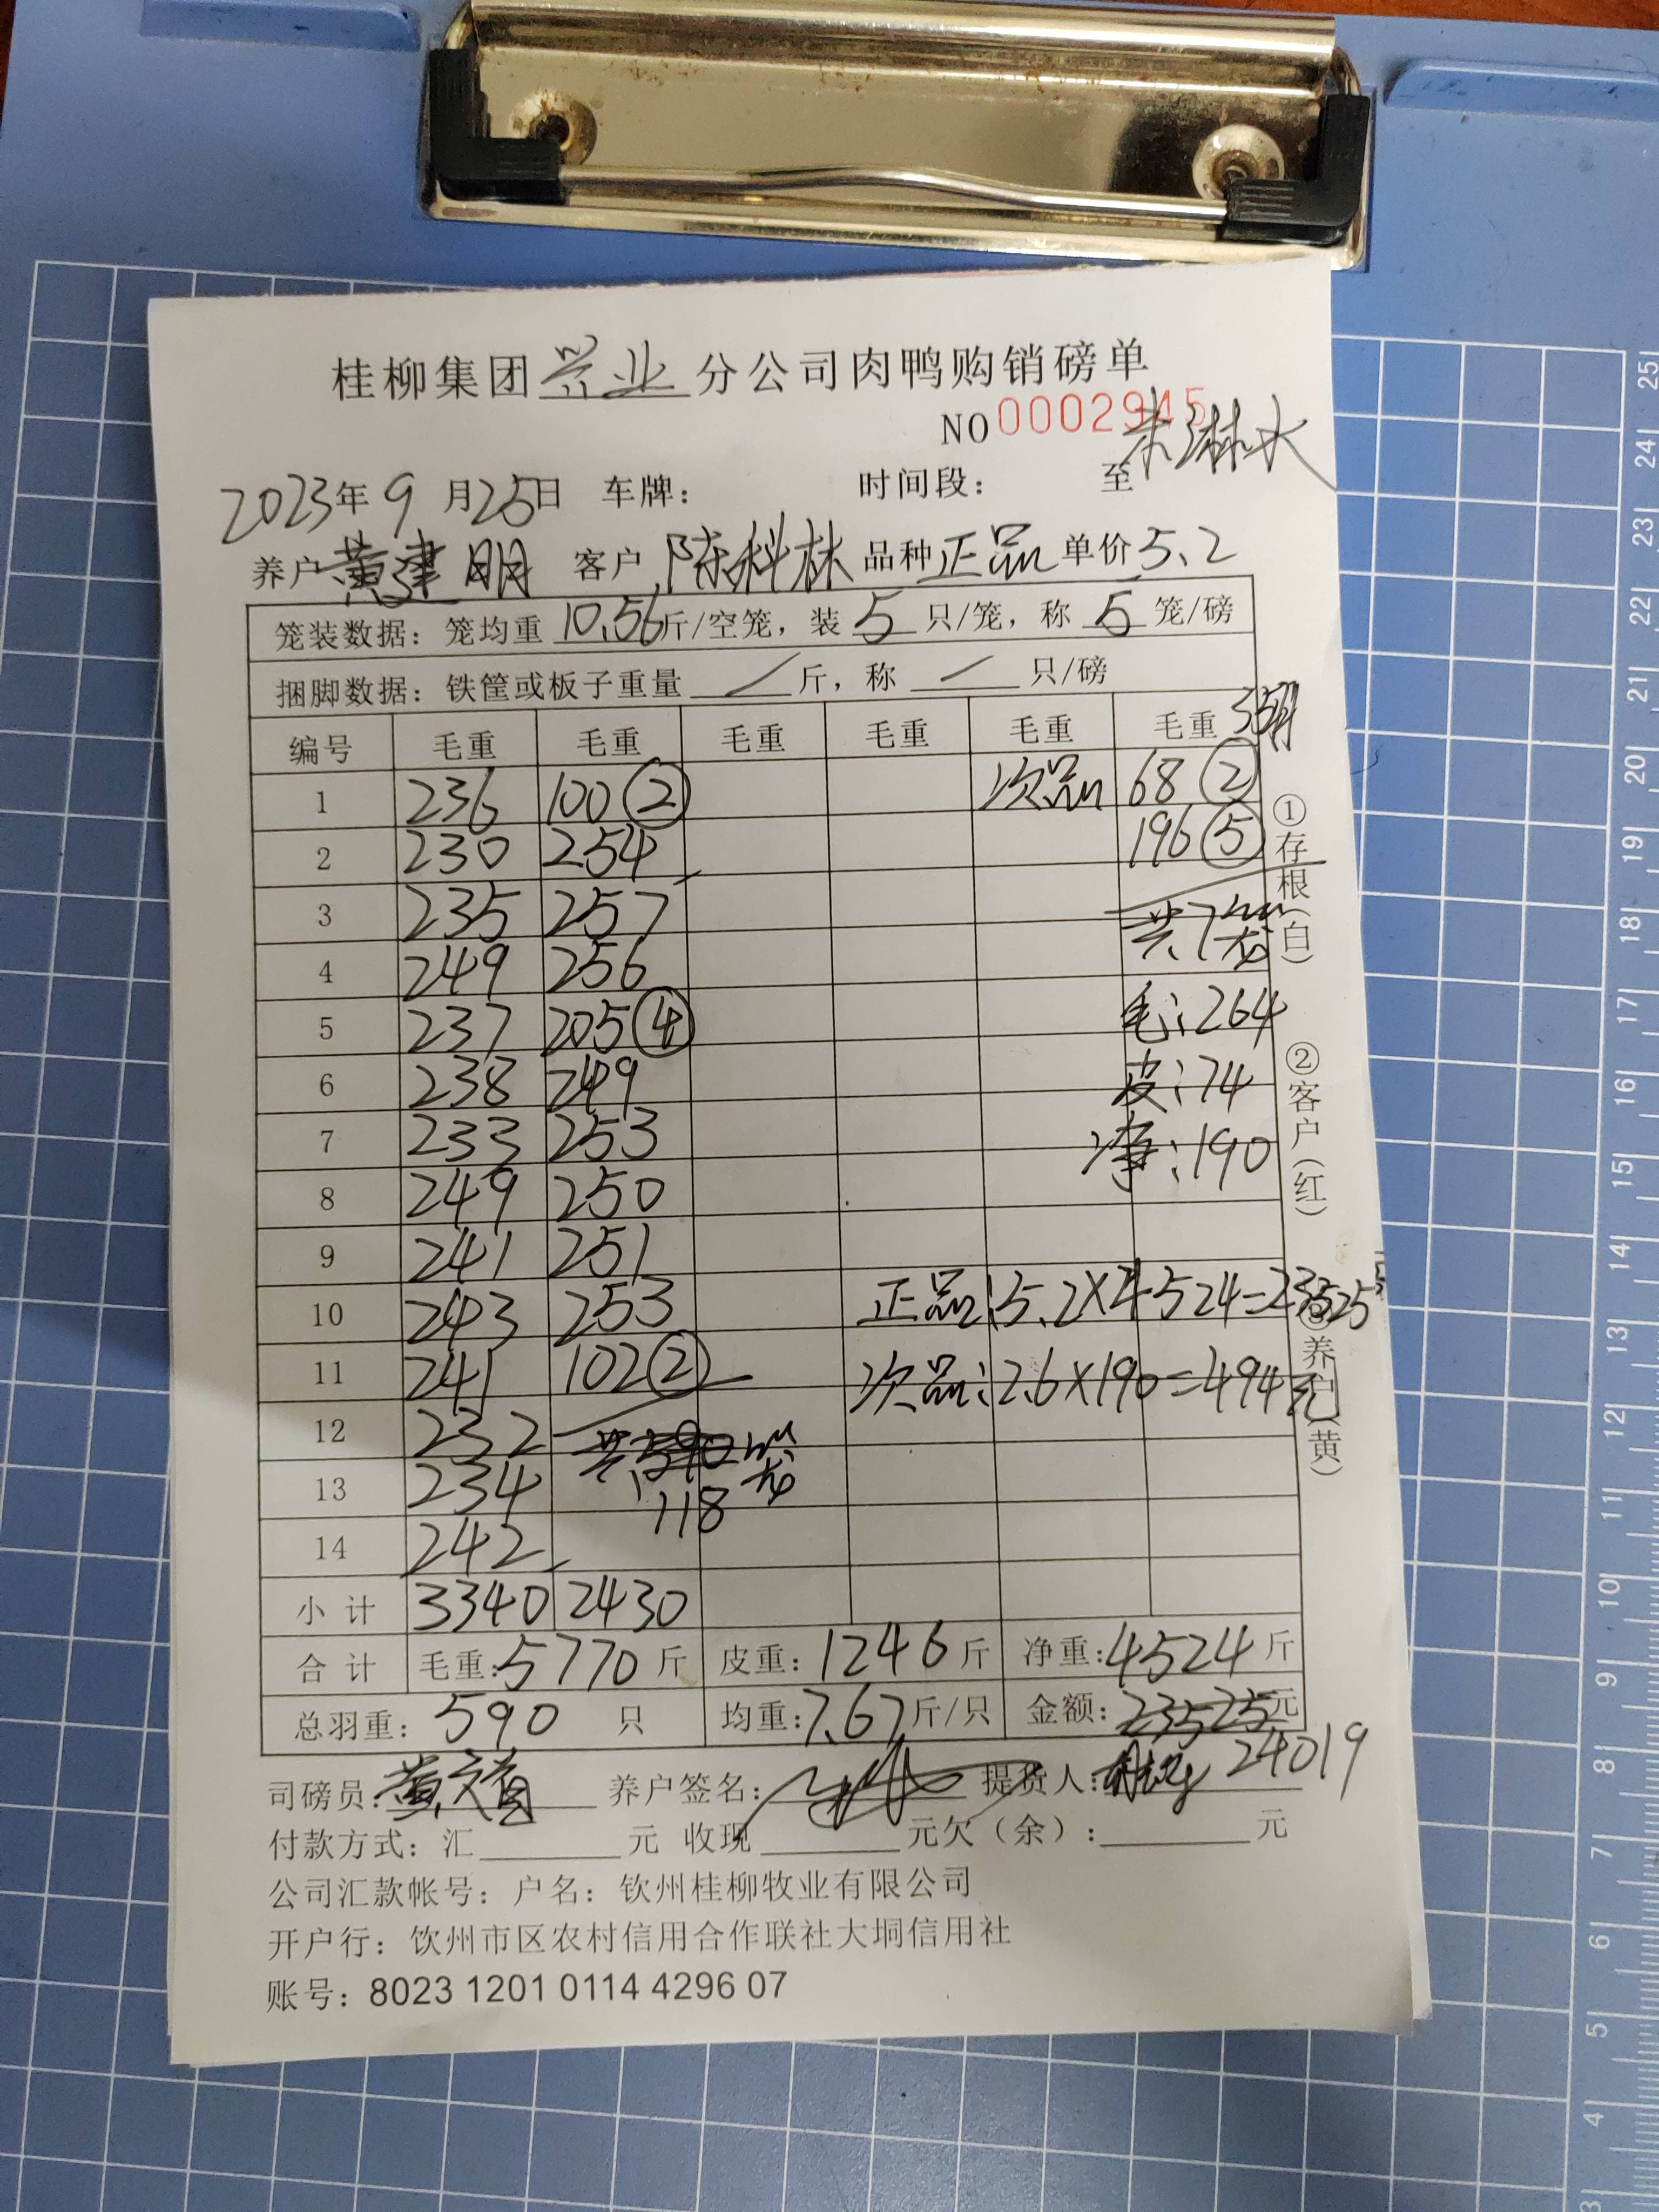 桂柳集团兴业分公司肉鸭购销磅单
NO 0002945
朱琳水
2023年9月25日 车牌： 时间段： 至
养户 黄建明 客户 陈科林 品种 正品 单价 5.2
笼装数据：笼均重 10.56 斤/空笼，装 5 只/笼，称 5 笼/磅
捆脚数据：铁筐或板子重量 / 斤，称 / 只/磅
编号 毛重 毛重 毛重 毛重 毛重 毛重 35只
1 236 100② 次品 68②
2 230 254 196⑤
3 235 257 共7笼
4 249 256
5 237 205④ 毛：264
6 238 249 皮：74
7 233 253 净：190
8 249 250
9 241 251
10 243 253 正品：5.2×4524=23525
11 241 102② 次品：2.6×190=494元
12 232 共590笼
13 234 118
14 242
小计 3340 2430
合计 毛重：5770斤 皮重：1246斤 净重：4524斤
总羽重：590 只 均重：7.67斤/只 金额：23525元
司磅员： 养户签名： 提货人： 24019
付款方式：汇 元 收现 元欠（余）： 元
公司汇款帐号：户名：钦州桂柳牧业有限公司
开户行：钦州市区农村信用合作联社大垌信用社
账号：8023 1201 0114 4296 07
①存根（白）
②客户（红）
③养户（黄）
25
24
23
22
21
20
19
18
17
16
15
14
13
12
11
10
9
8
7
6
5
4
3